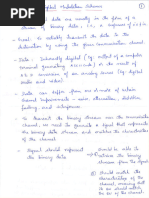 Digital Modulation Schemes
Digital data are usually in the form of a
stream of binary data, i.e., a sequence of
Goal: to reliably transmit the data to the
destination by using the given communication channel.
Data: Inherently digital (eg: output of a computer
terminal generating or the result of
A/D conversion of an analog (eg: digital
audio and video)
Data can suffer from the effects of certain
channel impairments - noise, attenuation, distortion,
fading and interference.
To transmit the binary stream over the communication
channel, we need to generate a signal that represents
the binary data stream and matches the characteristics
of the channel.
Signal should represent
the binary data
should be able to
retrieve the binary
stream from the signal
should match the
characteristics of the
channel, meaning that
its BW should match
the BW of the